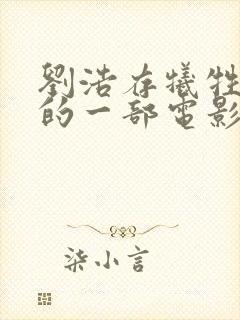 劉浩存犧牲
的一部電影
柒小言